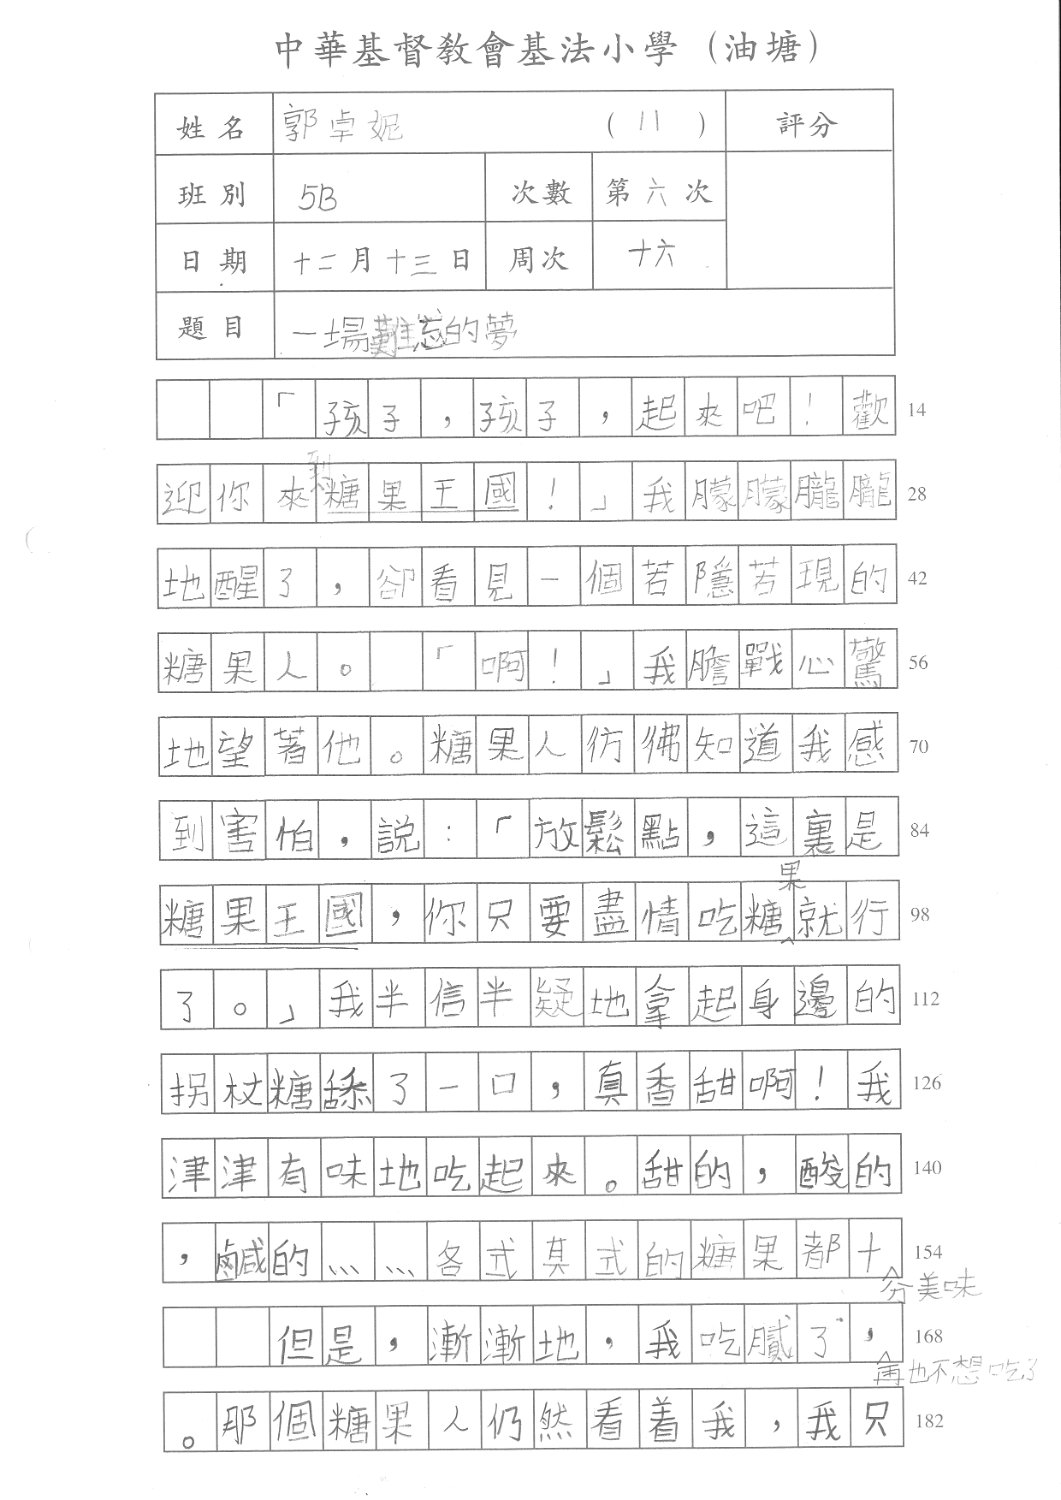 中華基督教會基法小學（油塘）
姓名 郭卓妮 （11） 評分
班別 5B 次數 第六次
日期 十二月十三日 周次 十六
題目 一場難忘的夢
「孩子，孩子，起來吧！歡 14
到
迎你來糖果王國！」我朦朦朧朧 28
地醒了，卻看見一個若隱若現的 42
糖果人。「啊！」我膽戰心驚 56
地望著他。糖果人彷彿知道我感 70
到害怕，説：「放鬆點，這裏是 84
果
糖果王國，你只要盡情吃糖就行 98
了。」我半信半疑地拿起身邊的 112
拐杖糖舔了一口，真香甜啊！我 126
津津有味地吃起來。甜的，酸的 140
，鹹的……各式其式的糖果都十 154
分美味
但是，漸漸地，我吃膩了， 168
再也不想吃了
。那個糖果人仍然看着我，我只 182